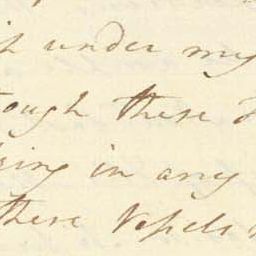 under my
ough these
ing in any
these Vessels